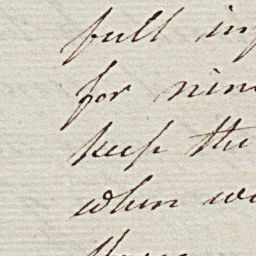 full inf
for nine
keep the
when we